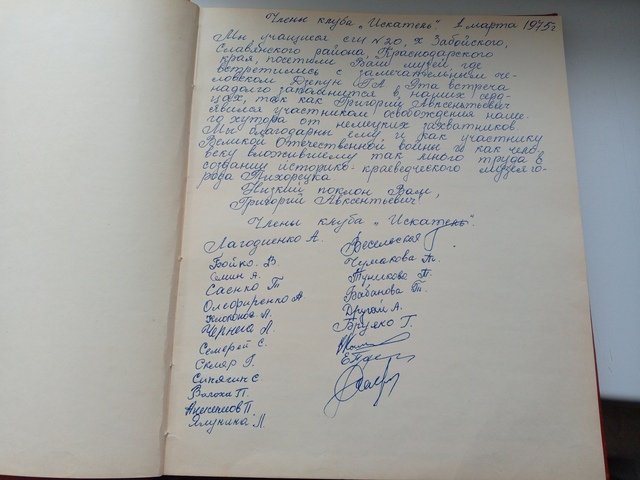 Члены клуба „Искатель" 1 марта 1975г
Мы, учащиеся сш N20, х Забойского,
Славянского района, Краснодарского
края, посетили Ваш музей где
встретились с замечательным че-
ловеком Дзепун Г.А Эта встреча
надолго запомнится в наших серд-
цах, так как Григорий Авксентьевич
явился участником освобождения наше-
го хутора от немецких захватчиков
Мы благодарны ему и как участнику
Великой Отечественной войны и как чело-
веку вложившему так много труда в
создании историко-краеведческого музея го-
рода Тихорецка
Низкий поклон Вам,
Григорий Авксентьевич!
Члены клуба „Искатель".
Лагодиенко А.
Бойко. В
Семин А.
Саенко Т
Олефиренко А
А.
Чернега Л.
Семерей С.
Скляр Г.
Сипягин С
Волоха П.
П.
Ялунина Л.
Веселовская
Чумакова Т.
Туникова Т.
Бабанова Т.
Другай А.
Бруяко Г.